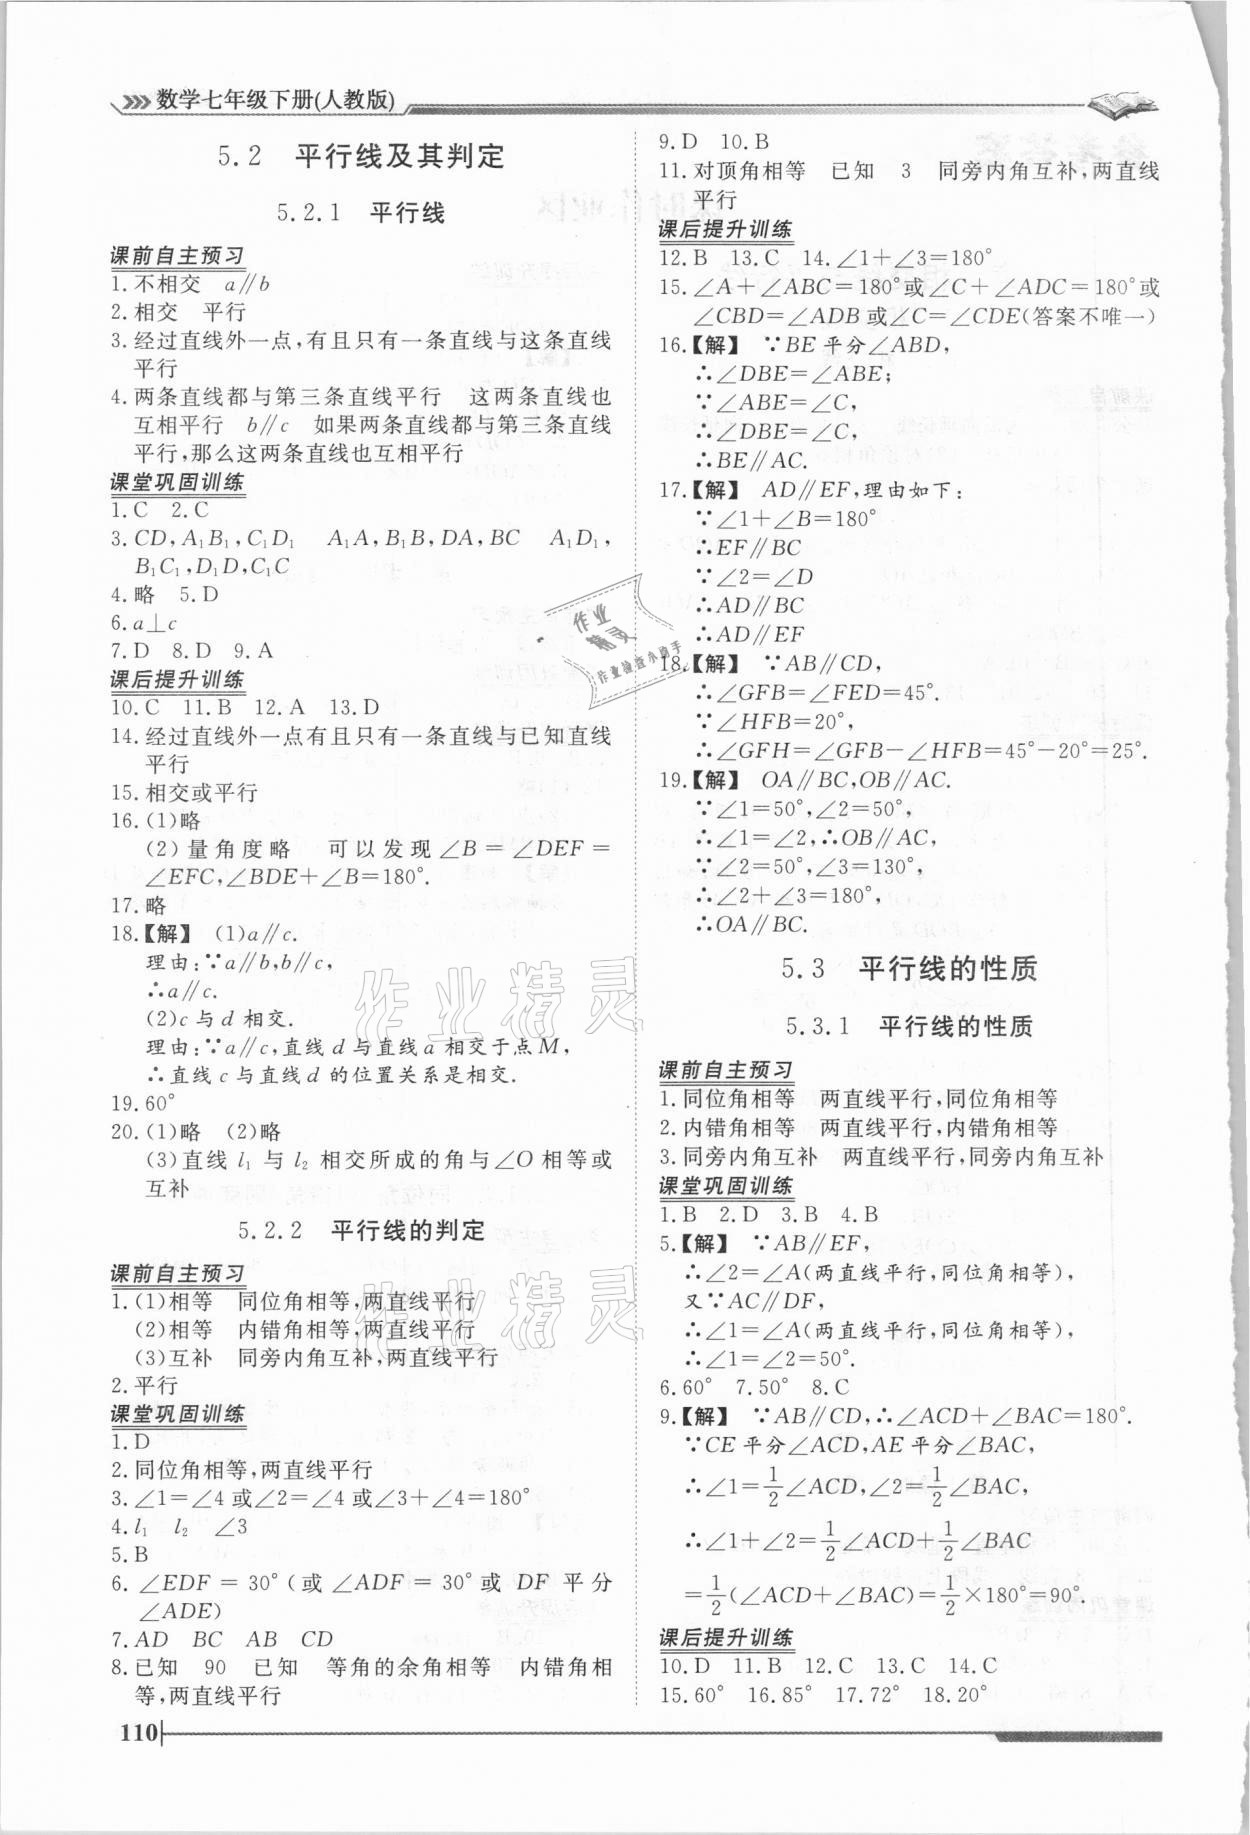 数学七年级下册(人教版)
5.2 平行线及其判定
5.2.1 平行线
课前自主预习
1.不相交 a∥b
2.相交 平行
3.经过直线外一点,有且只有一条直线与这条直线
平行
4.两条直线都与第三条直线平行 这两条直线也
互相平行 b∥c 如果两条直线都与第三条直线
平行,那么这两条直线也互相平行
课堂巩固训练
1.C 2.C
3.CD,A₁B₁,C₁D₁ A₁A,B₁B,DA,BC A₁D₁,
B₁C₁,D₁D,C₁C
4.略 5.D
6.a⊥c
7.D 8.D 9.A
课后提升训练
10.C 11.B 12.A 13.D
14.经过直线外一点有且只有一条直线与已知直线
平行
15.相交或平行
16.(1)略
(2)量角度略 可以发现∠B=∠DEF=
∠EFC,∠BDE+∠B=180°.
17.略
18.【解】 (1)a∥c.
理由:∵a∥b,b∥c,
∴a∥c.
(2)c与d相交.
理由:∵a∥c,直线d与直线a相交于点M,
∴直线c与直线d的位置关系是相交.
19.60°
20.(1)略 (2)略
(3)直线l₁与l₂相交所成的角与∠O相等或
互补
5.2.2 平行线的判定
课前自主预习
1.(1)相等 同位角相等,两直线平行
(2)相等 内错角相等,两直线平行
(3)互补 同旁内角互补,两直线平行
2.平行
课堂巩固训练
1.D
2.同位角相等,两直线平行
3.∠1=∠4或∠2=∠4或∠3+∠4=180°
4.l₁ l₂ ∠3
5.B
6.∠EDF=30°(或∠ADF=30°或DF平分
∠ADE)
7.AD BC AB CD
8.已知 90 已知 等角的余角相等 内错角相
等,两直线平行
9.D 10.B
11.对顶角相等 已知 3 同旁内角互补,两直线
平行
课后提升训练
12.B 13.C 14.∠1+∠3=180°
15.∠A+∠ABC=180°或∠C+∠ADC=180°或
∠CBD=∠ADB或∠C=∠CDE(答案不唯一)
16.【解】 ∵BE平分∠ABD,
∴∠DBE=∠ABE;
∵∠ABE=∠C,
∴∠DBE=∠C,
∴BE∥AC.
17.【解】 AD∥EF,理由如下:
∵∠1+∠B=180°
∴EF∥BC
∵∠2=∠D
∴AD∥BC
∴AD∥EF
18.【解】 ∵AB∥CD,
∴∠GFB=∠FED=45°.
∵∠HFB=20°,
∴∠GFH=∠GFB-∠HFB=45°-20°=25°.
19.【解】 OA∥BC,OB∥AC.
∵∠1=50°,∠2=50°,
∴∠1=∠2,∴OB∥AC,
∵∠2=50°,∠3=130°,
∴∠2+∠3=180°,
∴OA∥BC.
5.3 平行线的性质
5.3.1 平行线的性质
课前自主预习
1.同位角相等 两直线平行,同位角相等
2.内错角相等 两直线平行,内错角相等
3.同旁内角互补 两直线平行,同旁内角互补
课堂巩固训练
1.B 2.D 3.B 4.B
5.【解】 ∵AB∥EF,
∴∠2=∠A(两直线平行,同位角相等),
又∵AC∥DF,
∴∠1=∠A(两直线平行,同位角相等),
∴∠1=∠2=50°.
6.60° 7.50° 8.C
9.【解】 ∵AB∥CD,∴∠ACD+∠BAC=180°.
∵CE平分∠ACD,AE平分∠BAC,
∴∠1=1/2∠ACD,∠2=1/2∠BAC,
∴∠1+∠2=1/2∠ACD+1/2∠BAC
=1/2(∠ACD+∠BAC)=1/2×180°=90°.
课后提升训练
10.D 11.B 12.C 13.C 14.C
15.60° 16.85° 17.72° 18.20°
110
作业精灵
作业精灵
作业
精灵
作业检查小助手